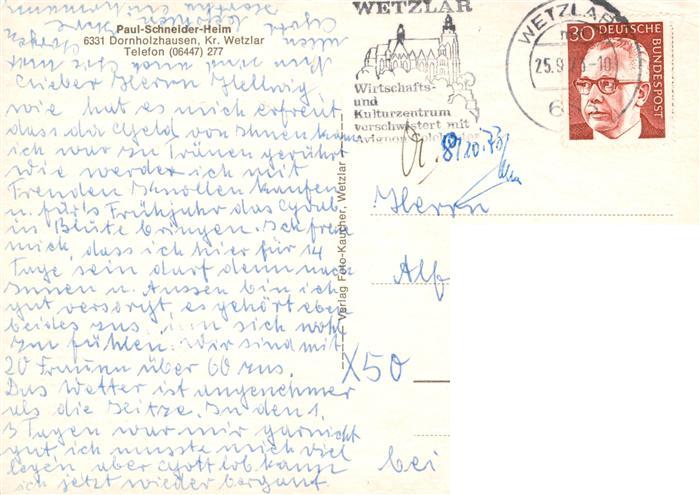 Paul-Schneider-Heim
6331 Dornholzhausen, Kr. Wetzlar
Telefon (06447) 277
Lieber Herrn Hellwig
wie hat es mich erfreut
dass da Geld von Ihnen kam
ich war zu Tränen gerührt
Wie werde ich mit
Freuden Knollen kaufen
u. für's Frühjahr das Grab
in Blüte bringen. Ich freu
mich, dass ich hier für 14
Tage sein darf denn nach
Innen u. Aussen bin ich
gut versorgt, es gehört eben
beides zus. um sich wohl
zu fühlen. Wir sind mit
20 Frauen über 60 zus.
Das Wetter ist angenehmer
als die Hitze. In den 1.
3 Tagen war mir garnicht
gut ich musste mich viel
legen, aber Gott lob kann
ich jetzt wieder bergauf.
Verlag Foto-Kaucher, Wetzlar
WETZLAR
Wirtschafts-
und
Kulturzentrum
verschwistert mit
WETZLAR
25.9.73-10
6
30 DEUTSCHE
BUNDESPOST
Herrn
Alf
X50
bei